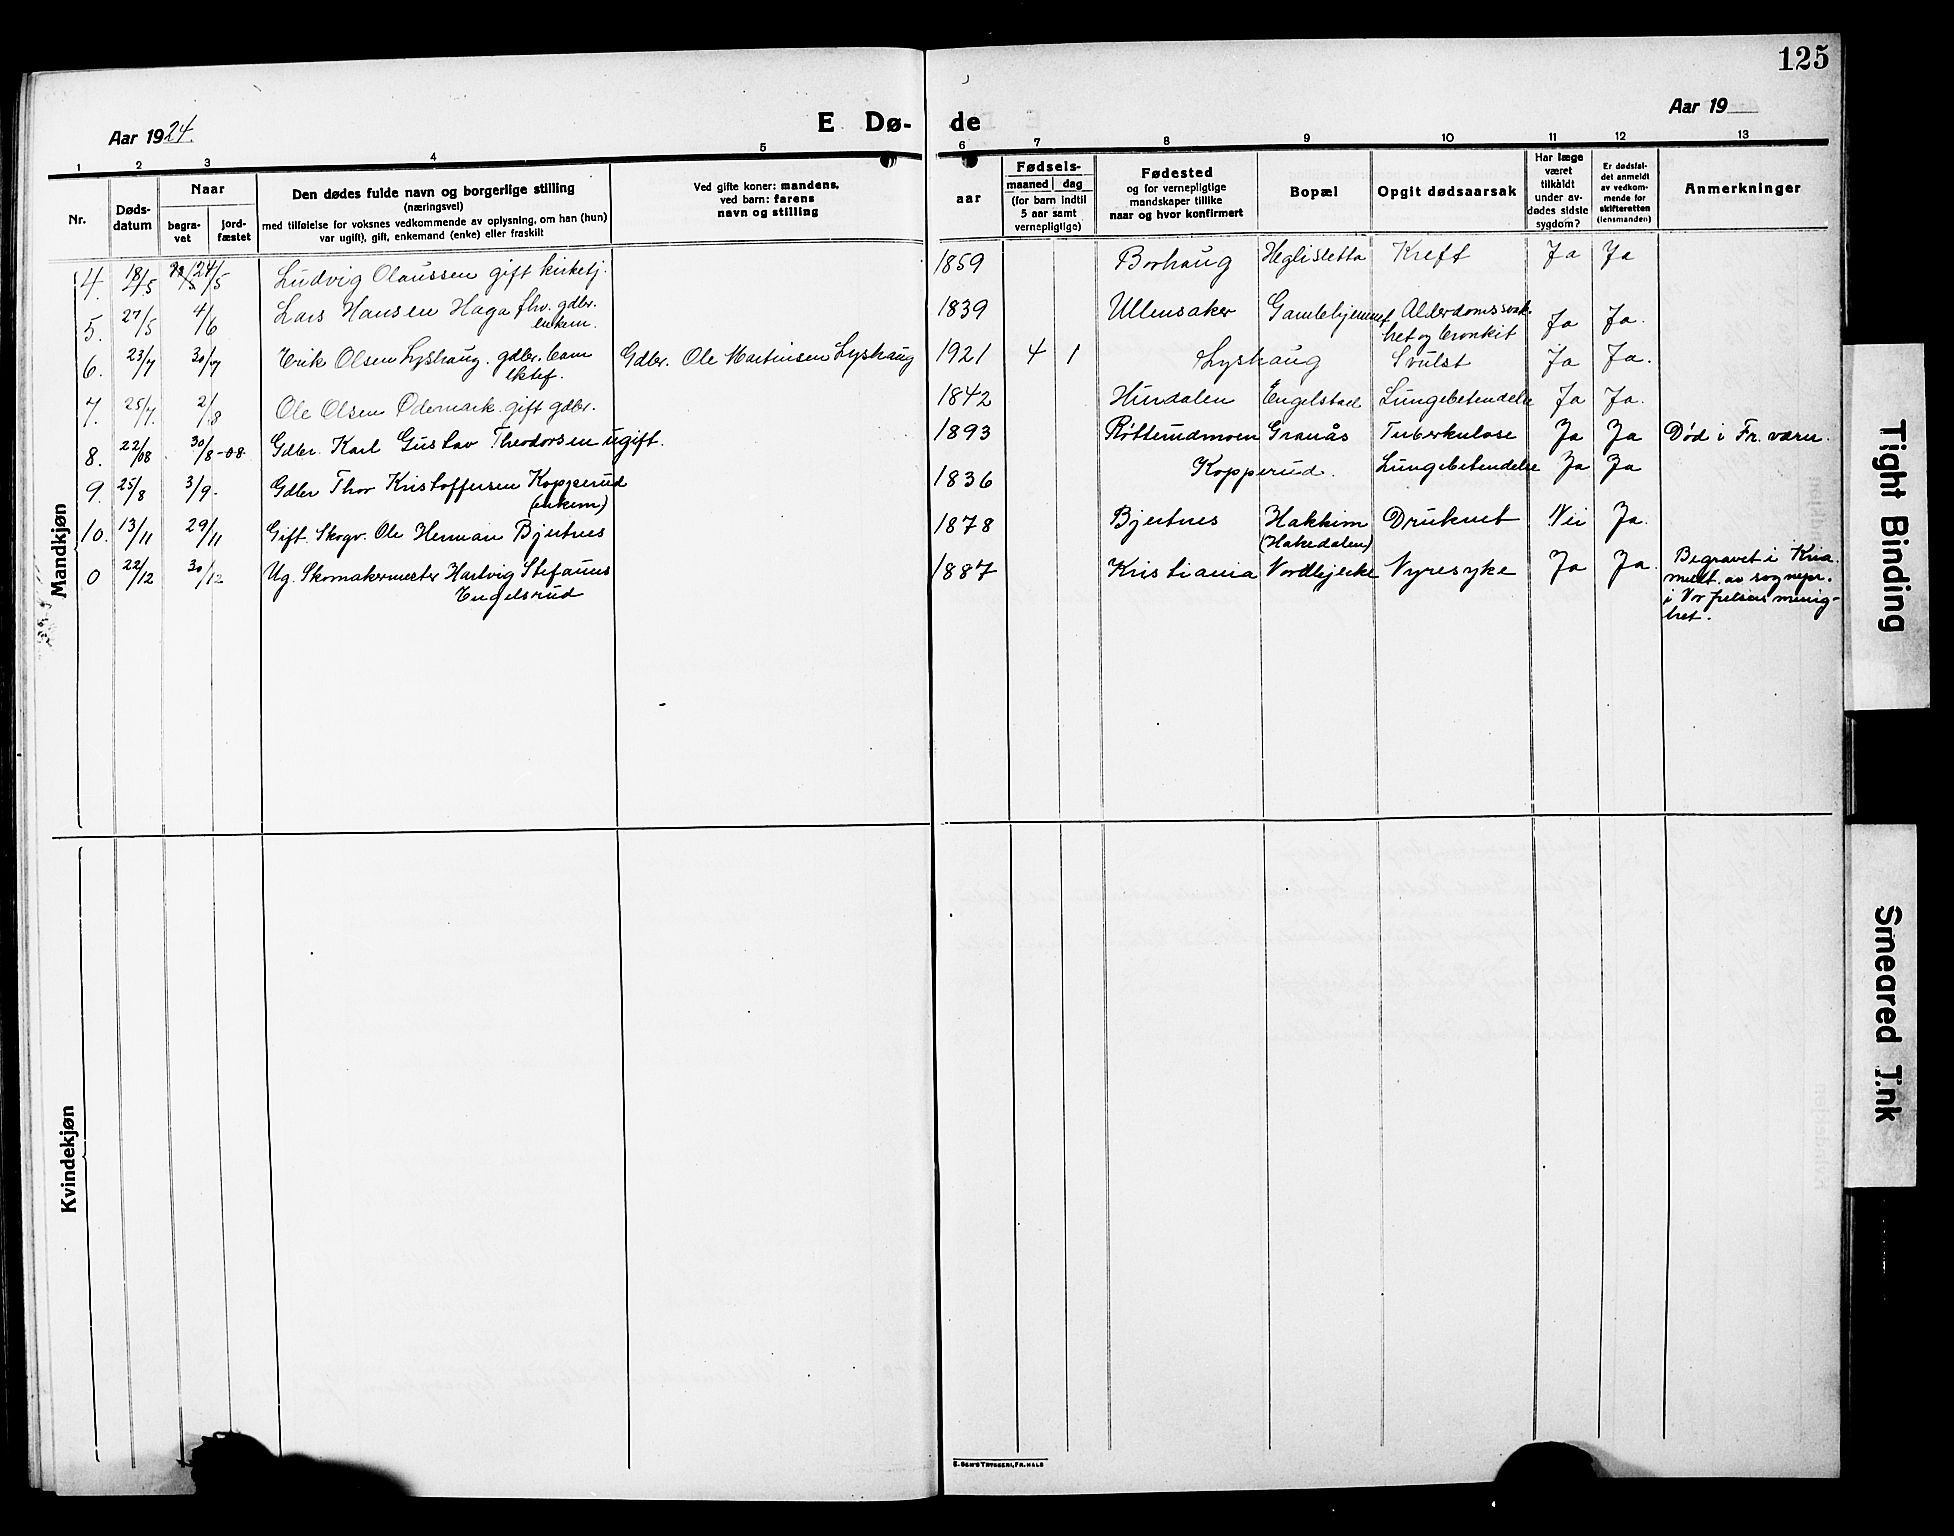 125
Aar 1924.
E Dø-
de
Aar 19
1 2 3 4 5 6 7 8 9 10 11 12 13
Nr.
Døds-
datum
Naar
begra-
vet
jord-
fæstet
Den dødes fulde navn og borgerlige stilling
(næringsvei)
med tilføielse for voksnes vedkommende av oplysning, om han (hun)
var ugift), gift, enkemand (enke) eller fraskilt
Ved gifte koner: mandens,
ved barn: farens
navn og stilling
aar
Fødsels-
maaned dag
(for barn indtil
5 aar samt
vernepligtige)
Fødested
og for vernepligtige
mandskaper tillike
naar og hvor konfirmert
Bopæl
Opgit dødsaarsak
Har læge
været
tilkaldt
under av-
dødes sidste
sygdom?
Er dødsfal-
det anmeldt
av vedkom-
mende for
skifteretten
(lensmanden)
Anmerkninger
Mandkjøn
4. 18/5 24/5 Ludvig Olaussen gift kirketj. 1859 Borhaug Heglisletta Kreft Ja Ja
5. 27/5 4/6 Lars Hansen Haga fhv. gdbr. 1839 Ullensaker Gamlehjemmet Alderdomssvak-
enkem. het og bronkit Ja Ja.
6. 23/7 30/7 Erik Olsen Lyshaug. gdbr. barn Gdbr. Ole Martinsen Lyshaug 1921 4 1 Lyshaug Svulst Ja Ja.
ektef.
7. 25/7. 2/8 Ole Olsen Ødemark. gift gdbr. 1842 Hurdalen Engelstad Lungebetendelse Ja Ja.
8. 22/08 30/8-08 Gdbr. Karl Gustav Theodorsen ugift. 1893 Røtterudmoen Granås Tuberkulose Ja Ja Død i Fr. værn.
9. 25/8 3/9. Gdbr Thor Kristoffersen Kopperud 1836 Kopperud. Lungebetendelse Ja Ja
(enkem)
10. 13/11 29/11 Gift. Skogv. Ole Herman Bjertnes 1878 Bjertnes Hakkim Druknet Nei Ja.
(Hakedalen)
0 22/12 30/12 Ug. Skomakermester Hartvig Stefanus 1887 Kristiania Nordbjerke Nyresyke Ja Ja. Begravet i Kria.
Engelsrud
medt. av sognepr.
i Vor frelsers menig-
het.
Kvindekjøn
Tight Binding
Smeared Ink